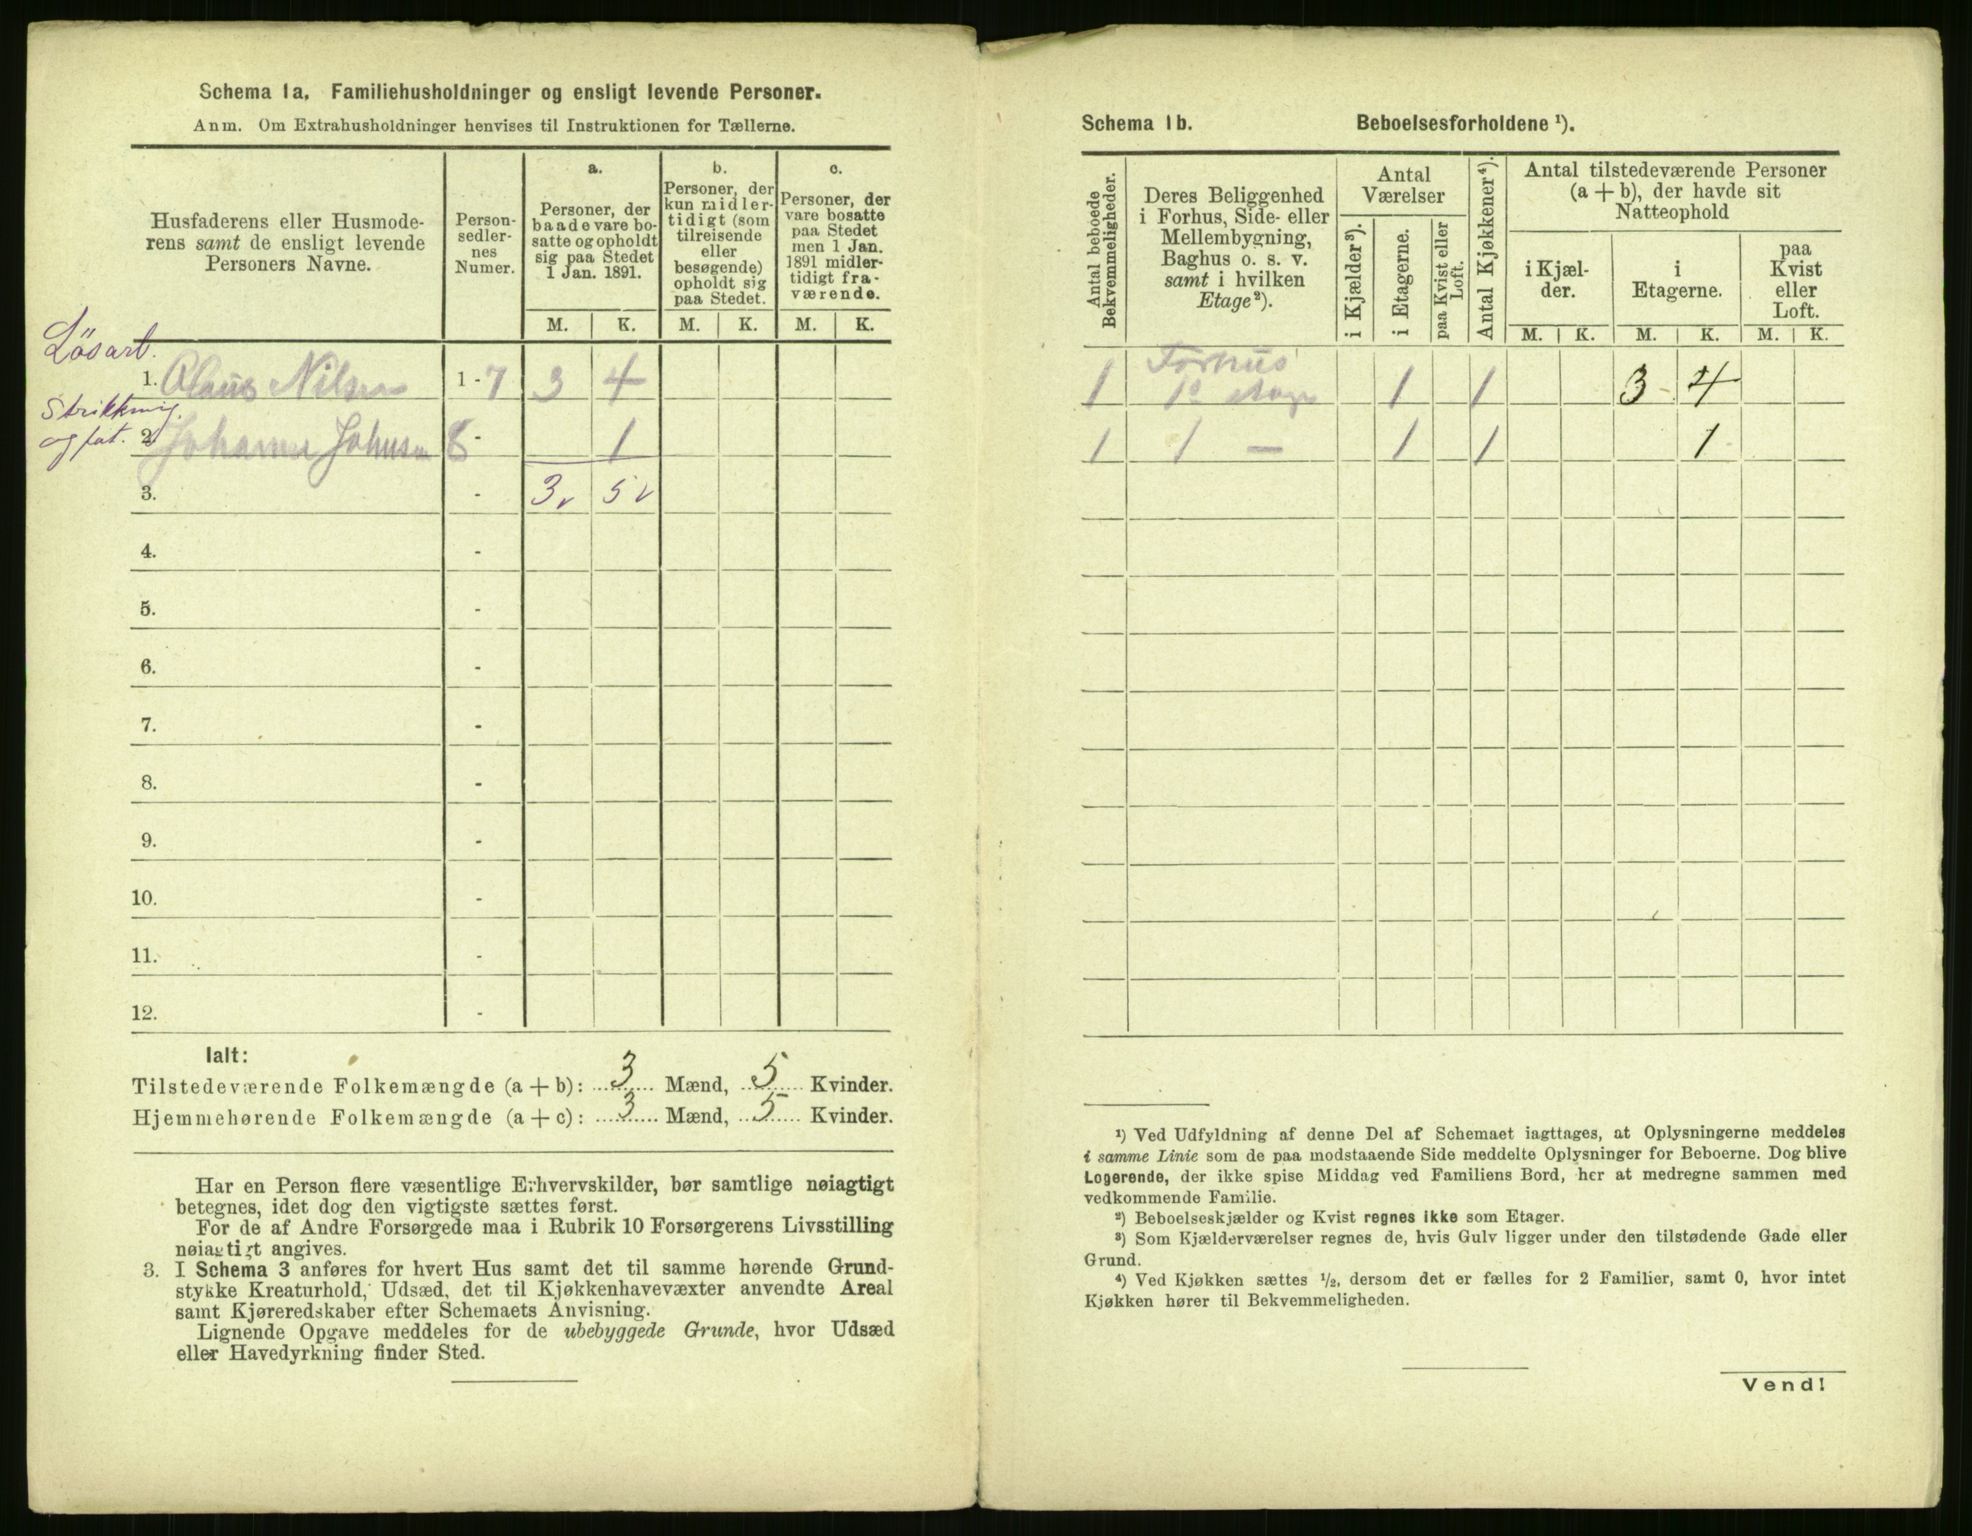 Schema 1a. Familiehusholdninger og ensligt levende Personer.
Anm. Om Extrahusholdninger henvises til Instruktionen for Tællerne.
Husfaderens eller Husmode-
rens samt de ensligt levende
Personers Navne.
Person-
sedler-
nes
Numer.
a.
Personer, der
baade vare bo-
satte og opholdt
sig paa Stedet
1 Jan. 1891.
b.
Personer, der
kun midler-
tidigt (som
tilreisende
eller
besøgende)
opholdt sig
paa Stedet.
c.
Personer, der
vare bosatte
paa Stedet
men 1 Jan.
1891 midler-
tidigt fra-
værende.
M. K. M. K. M. K.
Lösart.
1. Claus Nilsen 1 - 7 3 4
Strikkning
og fat.
2. Johanne Johnsen 8 - 1
3. - 3 5
4. -
5. -
6. -
7. -
8. -
9. -
10. -
11. -
12. -
Ialt:
Tilstedeværende Folkemængde (a + b): 3 Mænd, 5 Kvinder.
Hjemmehørende Folkemængde (a + c): 3 Mænd, 5 Kvinder.
Har en Person flere væsentlige Erhvervskilder, bør samtlige nøiagtigt
betegnes, idet dog den vigtigste sættes først.
For de af Andre Forsørgede maa i Rubrik 10 Forsørgerens Livsstilling
nøiagtigt angives.
3. I Schema 3 anføres for hvert Hus samt det til samme hørende Grund-
stykke Kreaturhold, Udsæd, det til Kjøkkenhavevæxter anvendte Areal
samt Kjøreredskaber efter Schemaets Anvisning.
Lignende Opgave meddeles for de ubebyggede Grunde, hvor Udsæd
eller Havedyrkning finder Sted.
Schema 1b. Beboelsesforholdene ¹).
Antal beboede
Bekvemmeligheder.
Deres Beliggenhed
i Forhus, Side- eller
Mellembygning,
Baghus o. s. v.
samt i hvilken
Etage ²).
Antal
Værelser
i Kjælder ³).
i Etagerne.
paa Kvist eller
Loft.
Antal Kjøkkener ⁴).
Antal tilstedeværende Personer
(a + b), der havde sit
Natteophold
i Kjæl-
der.
i
Etagerne.
paa
Kvist
eller
Loft.
M. K. M. K. M. K.
1 Forhus 1 1 3 - 4
1 1 — 1 1 1
¹) Ved Udfyldning af denne Del af Schemaet iagttages, at Oplysningerne meddeles
i samme Linie som de paa modstaaende Side meddelte Oplysninger for Beboerne. Dog blive
Logerende, der ikke spise Middag ved Familiens Bord, her at medregne sammen med
vedkommende Familie.
²) Beboelseskjælder og Kvist regnes ikke som Etager.
³) Som Kjælderværelser regnes de, hvis Gulv ligger under den tilstødende Gade eller
Grund.
⁴) Ved Kjøkken sættes ½, dersom det er fælles for 2 Familier, samt 0, hvor intet
Kjøkken hører til Bekvemmeligheden.
Vend!